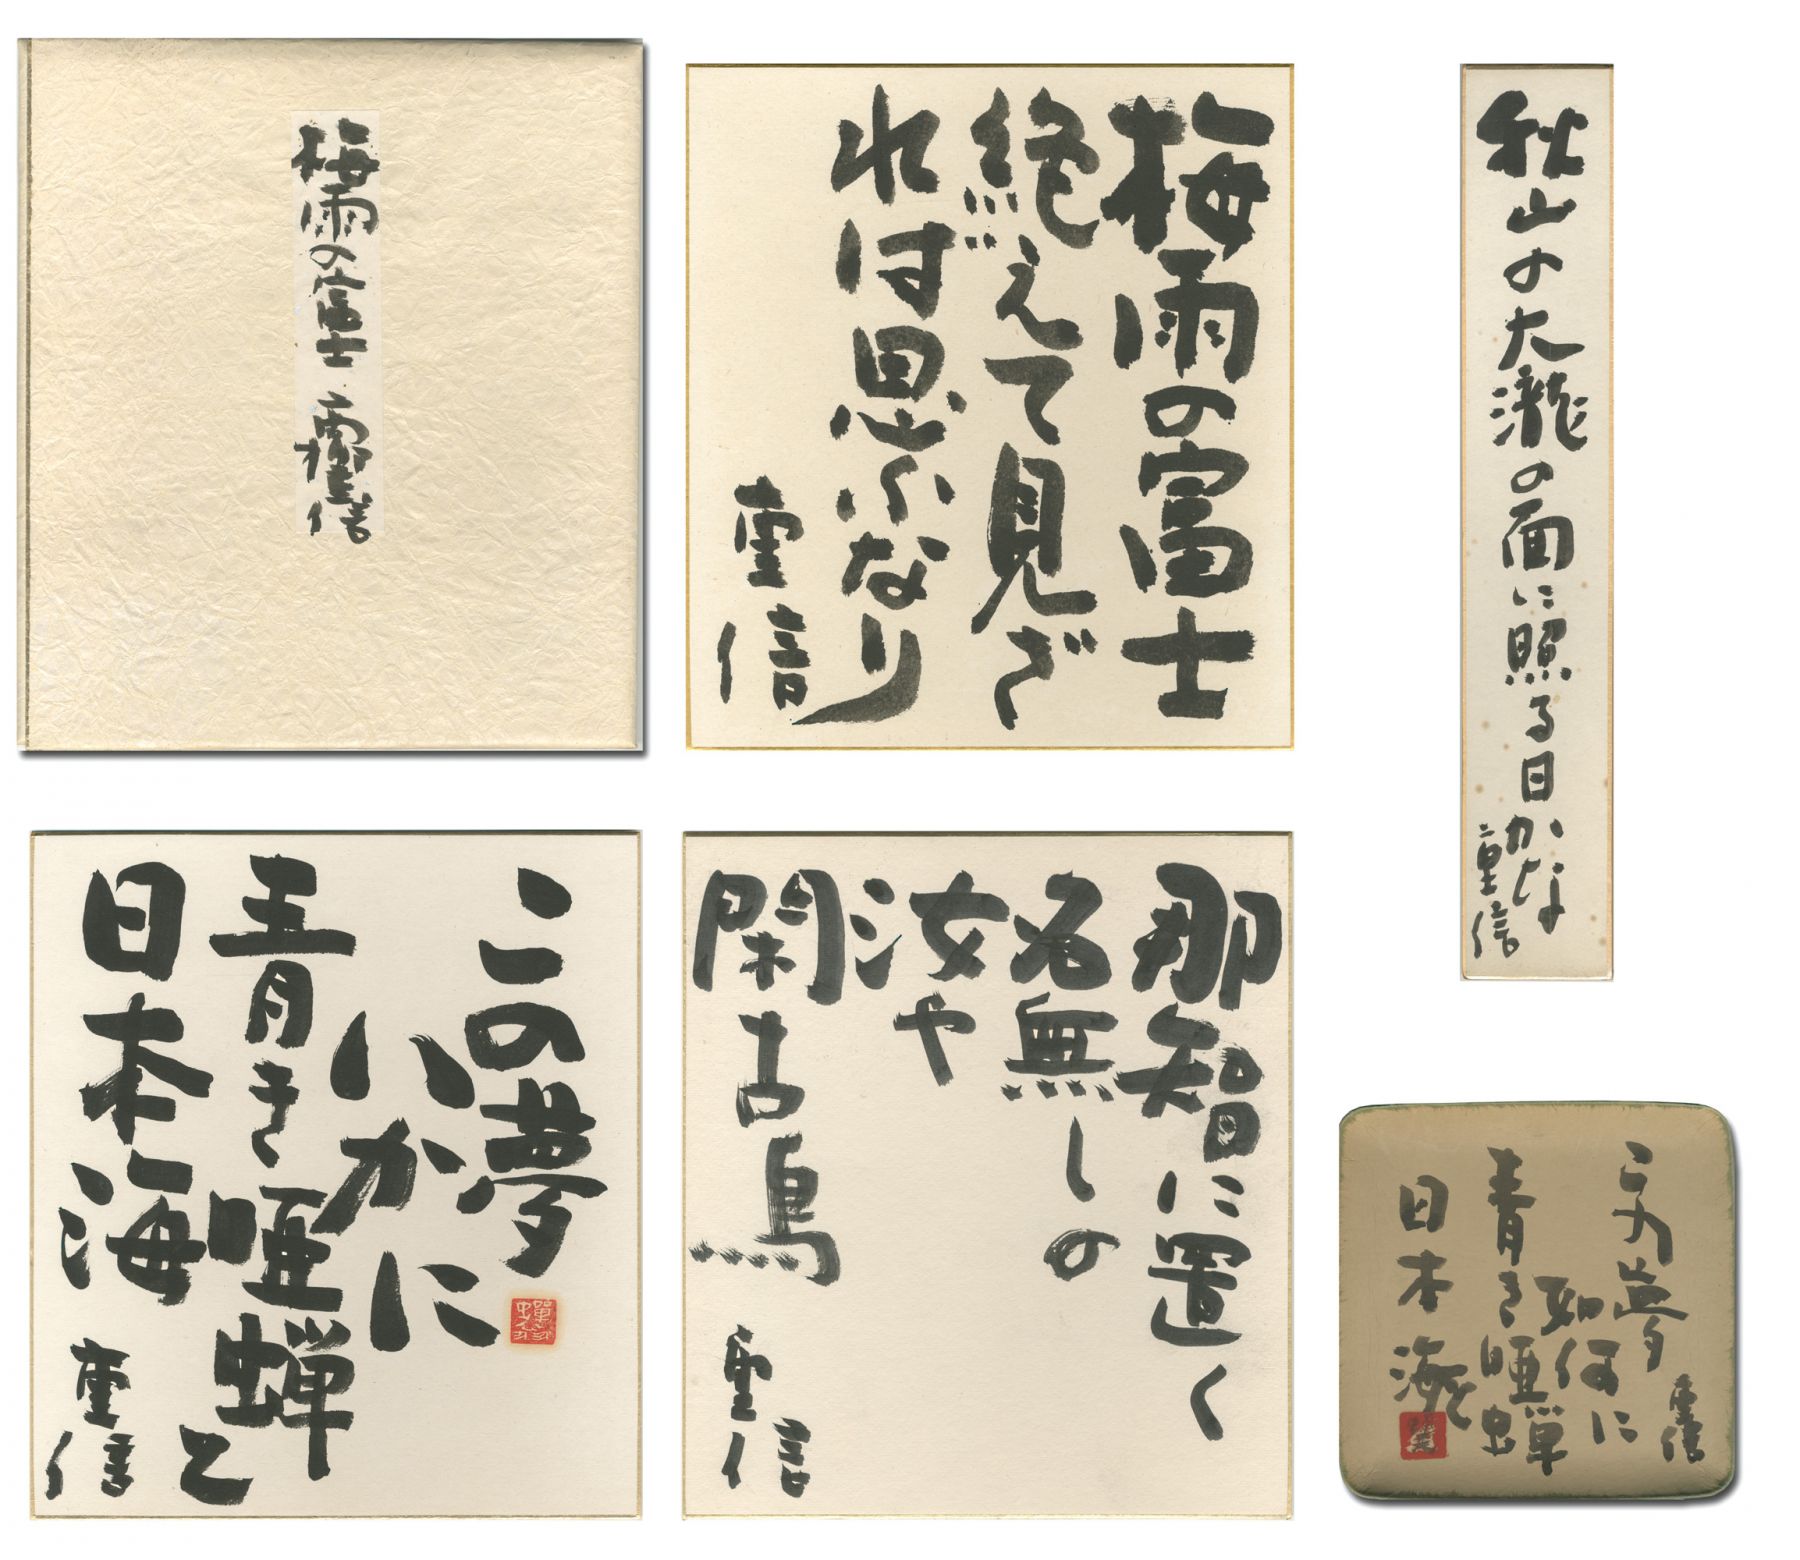 梅雨の富士 高柳重信
梅雨の富士
絶えて見ざ
れば思ふなり
重信
秋山の大瀧の面に照る日かな
重信
この夢
いかに
青き唖蝉と
日本海
重信
那智に置く
名無しの
汝や
閑古鳥
重信
この夢
如何に
青き唖蝉
日本海
重信